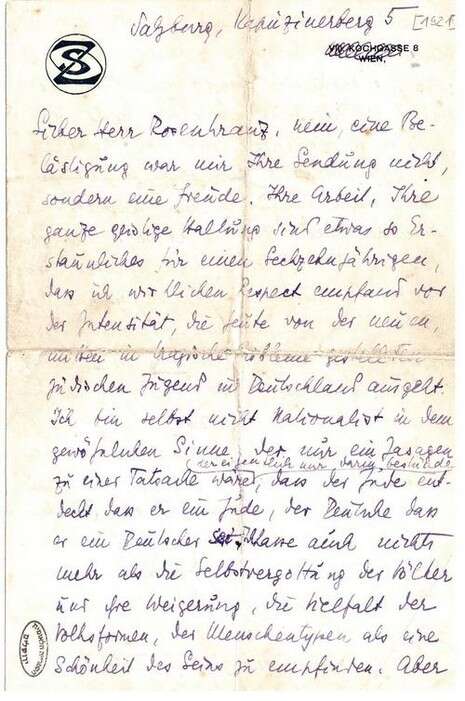 Salzburg, Kapuzinerberg 5 [1921]
SZ
VIII. KOCHGASSE 8
WIEN,
Lieber Herr Rosenkranz, nein, eine Be-
lästigung war mir Ihre Sendung nicht,
sondern eine Freude. Ihre Arbeit, Ihre
ganze geistige Haltung sind etwas so Er-
staunliches für einen Sechzehnjährigen,
dass ich wirklichen Respect empfand vor
der Intensität, die heute von der neuen,
mitten in tragische Probleme gestellten
jüdischen Jugend in Deutschland ausgeht.
Ich bin selbst nicht Nationalist in dem
gewöhnlichen Sinne, der nur ein Jasagen
der eigentlich nur darin bestünde
zu einer Tatsache wäre, dass der Jude ent-
deckt dass er ein Jude, der Deutsche dass
er ein Deutscher sei. Ich hasse auch nichts
mehr als die Selbstvergottung der Völcher
und ihre Weigerung, die Vielfalt der
Volksformen, der Menschentypen als eine
Schönheit des Seins zu empfinden. Aber